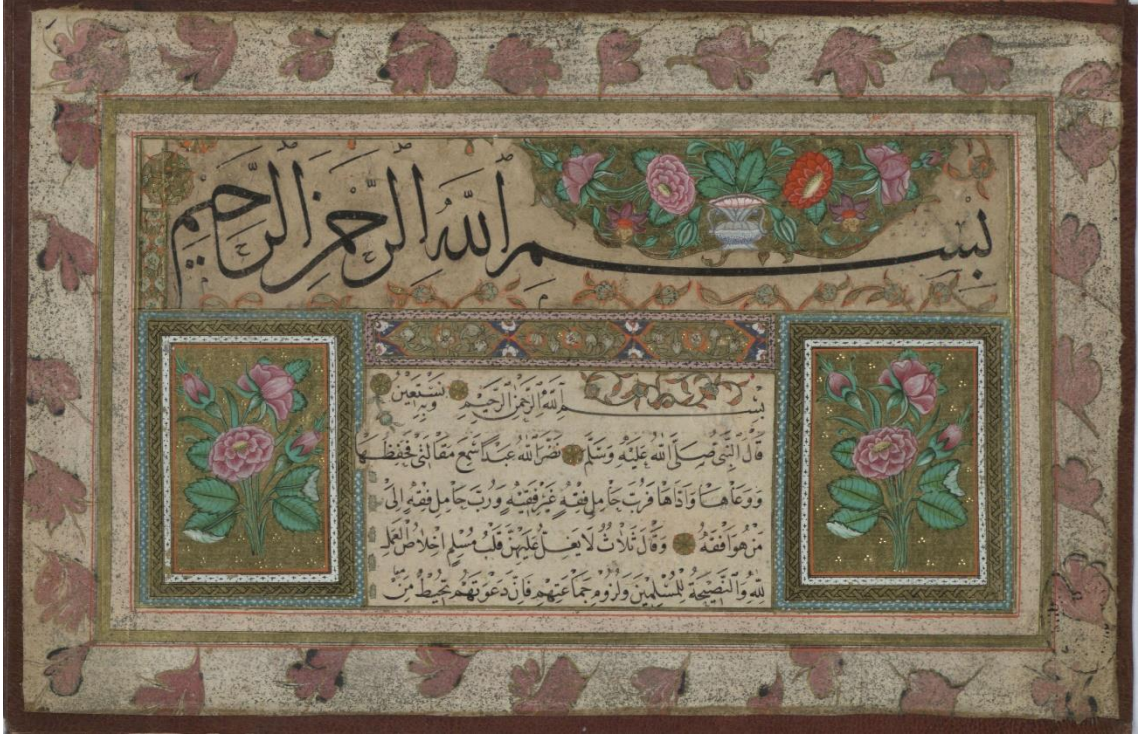 بِسْمِ اللهِ الرَّحْمٰنِ الرَّحِيمِ
بِسْمِ اللهِ الرَّحْمٰنِ الرَّحِيمِ وَبِهِ نَسْتَعِينُ
قَالَ النَّبِيُّ صَلَّى اللهُ عَلَيْهِ وَسَلَّمَ نَضَّرَ اللهُ عَبْداً سَمِعَ مَقَالَتِي فَحَفِظَهَا
وَوَعَاهَا وَادَّاهَا فَرُبَّ حَامِلِ فِقْهٍ غَيْرُ فَقِيْهٍ وَرُبَّ حَامِلِ فِقْهٍ اِلَى
مَنْ هُوَ اَفْقَهُ وَقَالَ ثَلَاثٌ لَا يَغِلُّ عَلَيْهِنَّ قَلْبُ مُسْلِمٍ اِخْلَاصُ الْعَمَلِ
لِلّٰهِ وَالنَّصِيحَةُ لِلْمُسْلِمِينَ وَلُزُومِ جَمَاعَتِهِمْ فَاِنَّ دَعْوَتَهُمْ تُحِيطُ مِنْ